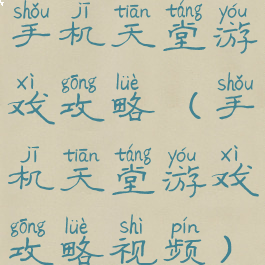 shǒu jī tiān táng yóu
手机天堂游
xì gōng lüè shǒu
戏攻略（手
jī tiān táng yóu xì
机天堂游戏
gōng lüè shì pín
攻略视频）